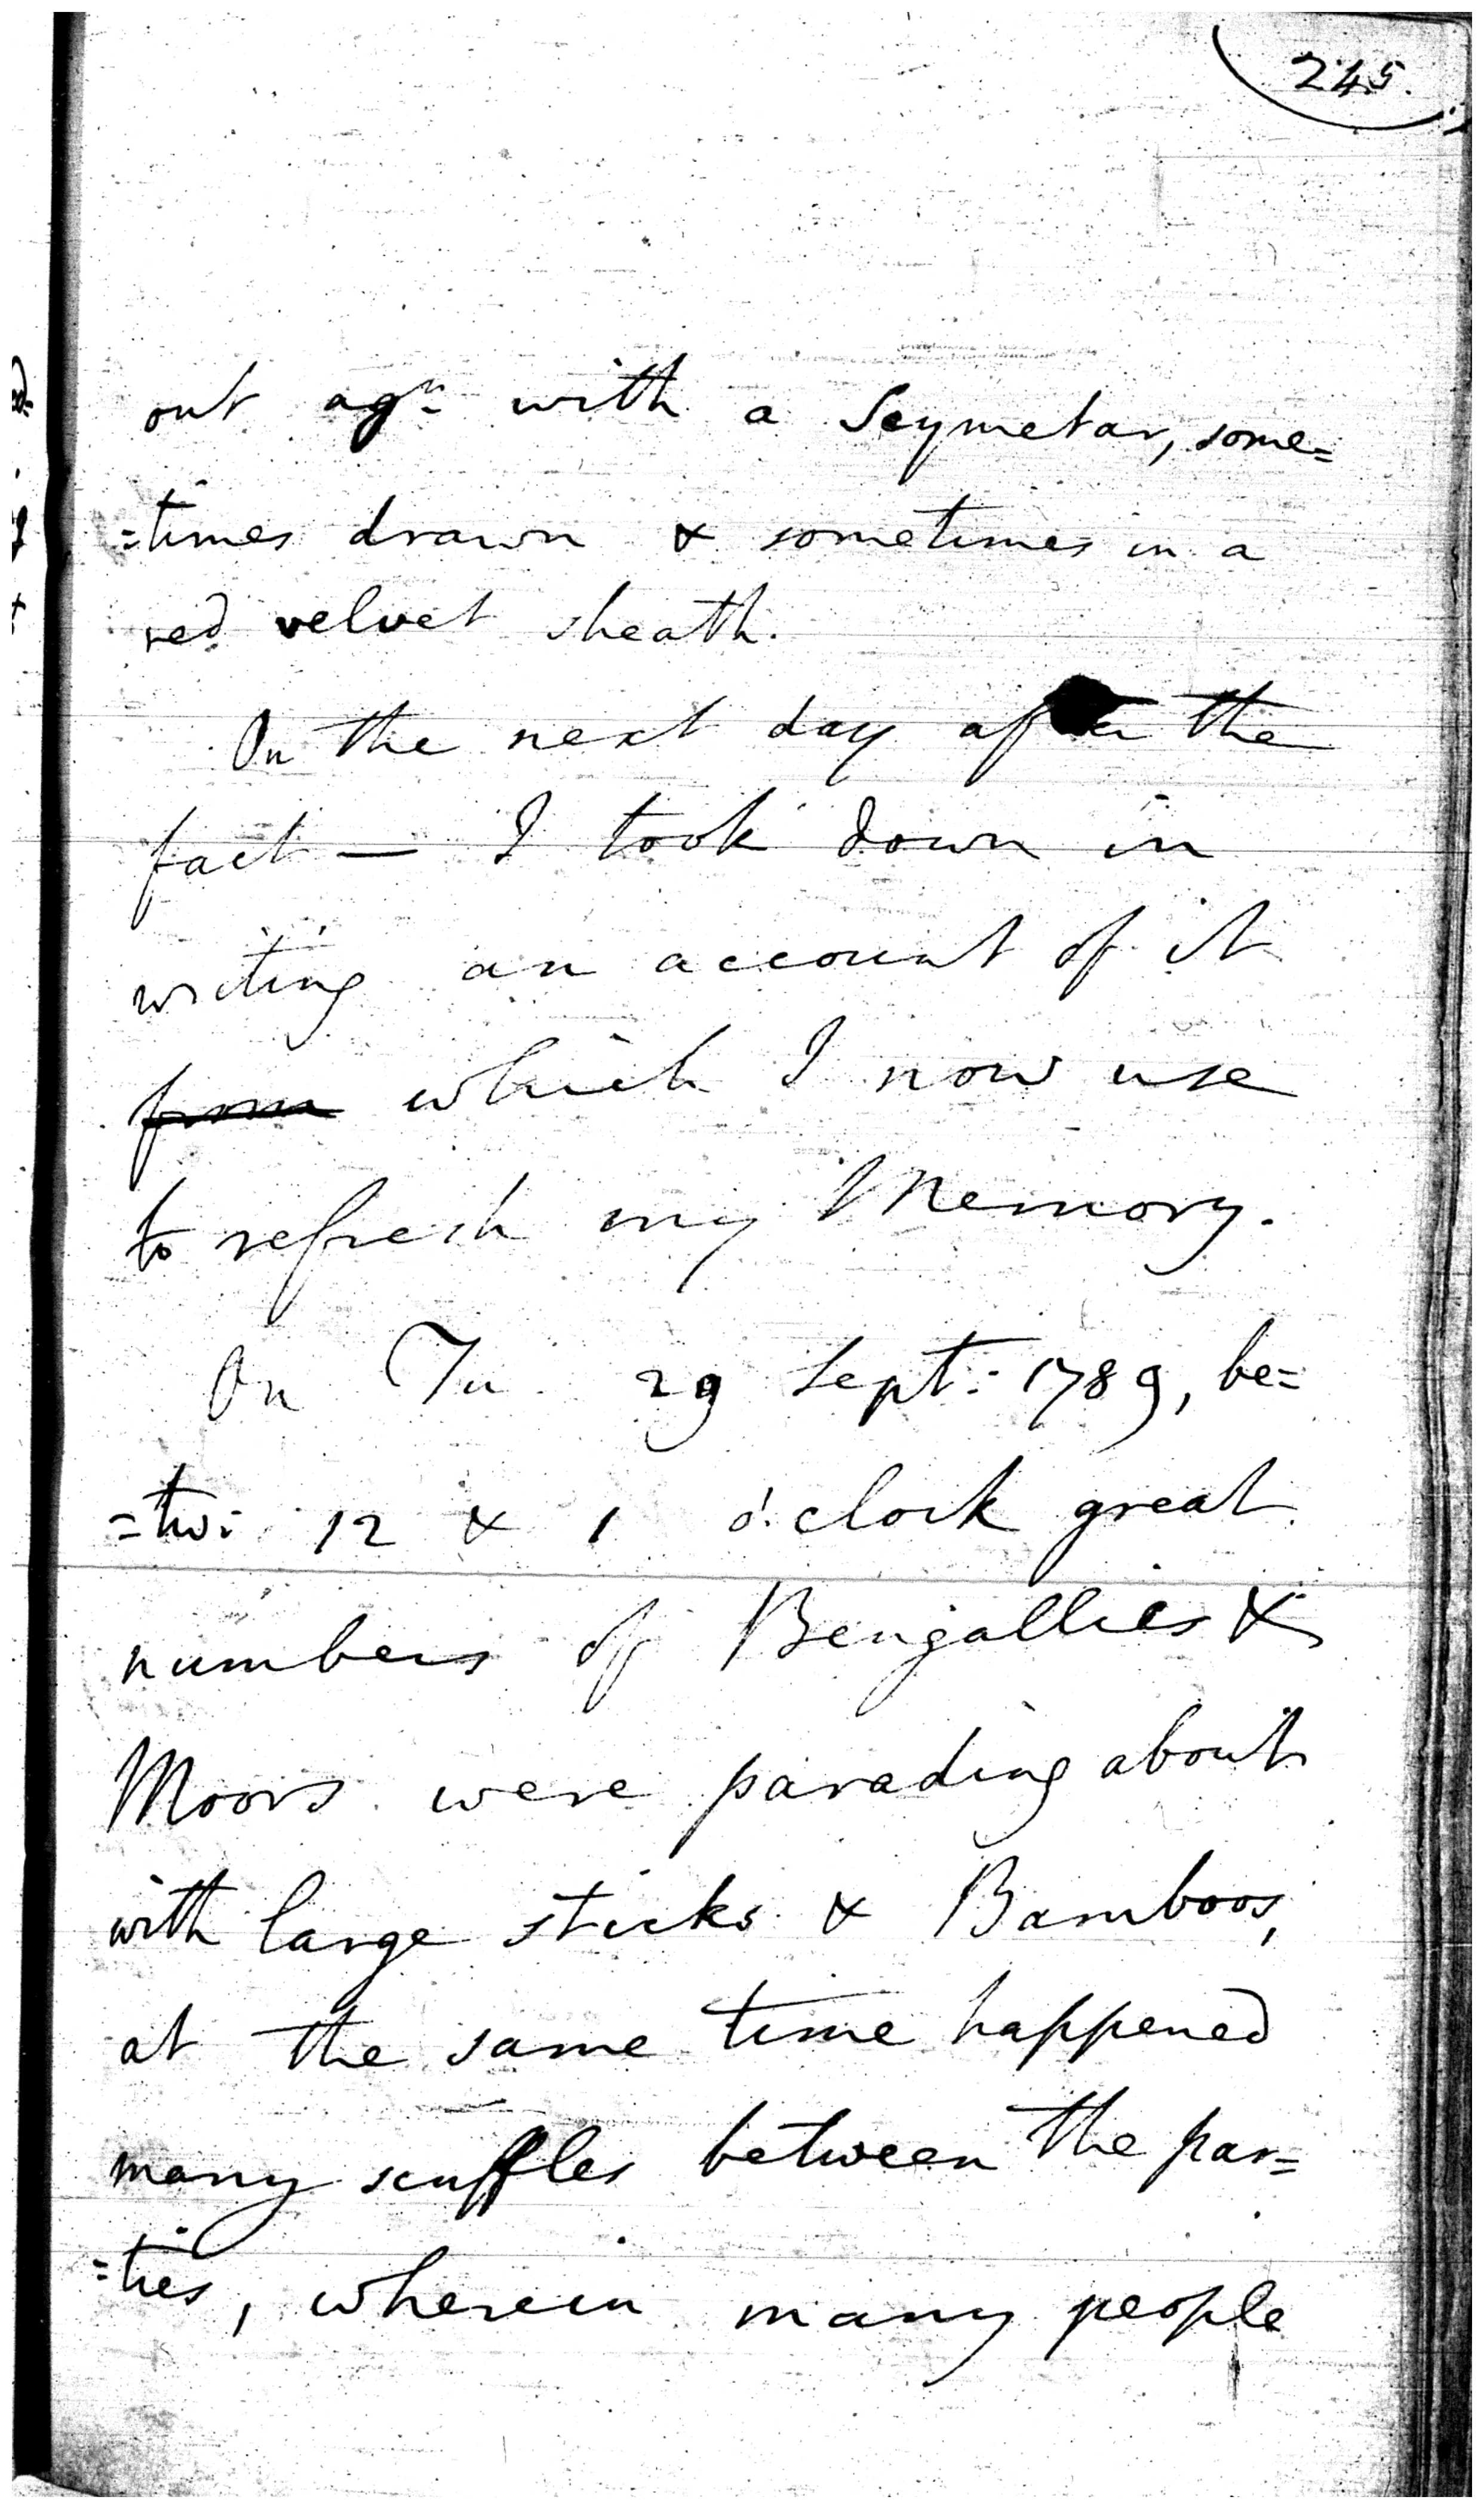 245.
out agn with a Scymetar, some=
=times drawn & sometimes in a
red velvet sheath.
On the next day after the
fact — I took down in
writing an account of it
from which I now use
to refresh my Memory.
On Tu 29 Sept: 1789, be=
=tw: 12 & 1 o'clock great
numbers of Bengallies &
Moors were parading about
with large sticks & Bamboos,
at the same time happened
many scuffles between the par=
=ties, wherein many people